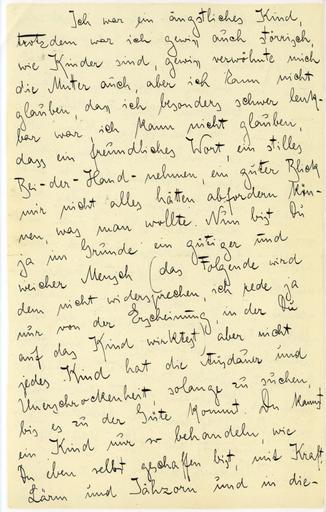 Ich war ein ängstliches Kind,
trotzdem war ich gewiß auch störrisch,
wie Kinder sind, gewiß verwöhnte mich
die Mutter auch, aber ich kann nicht
glauben, daß ich besonders schwer lenk-
bar war, ich kann nicht glauben,
dass ein freundliches Wort, ein stilles
Bei-der-Hand-nehmen, ein guter Blick
mir nicht alles hätten abfordern kön-
nen, was man wollte. Nun bist Du
ja im Grunde ein gütiger und
weicher Mensch (das Folgende wird
dem nicht widersprechen, ich rede ja
nur von der Erscheinung, in der Du
auf das Kind wirktest) aber nicht
jedes Kind hat die Ausdauer und
Unerschrockenheit, solange zu suchen,
bis es zu der Güte kommt. Du kannst
ein Kind nur so behandeln, wie
Du eben selbst geschaffen bist, mit Kraft,
Lärm und Jähzorn und in die-